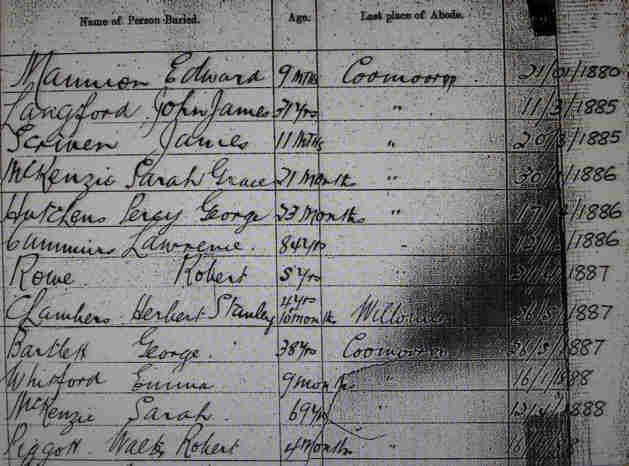 Name of Person Buried. Age. Last place of Abode.
Mannion Edward 9 Mths Coomooroo 21/01/1880
Langford John James 31 yrs " 11/3/1885
Scriven James 11 Mths " 20/3/1885
McKenzie Sarah Grace 21 Months " /1886
Hutchens Percy George 23 Months " /1886
Cummins Lawrence. 84 yrs " /1886
Rowe Robert 5 yrs /1887
Chambers Herbert Stanley 4 yrs 10 months /1887
Bartlett George. 38 yrs Coomooroo 26/5/1887
Whitford Emma 9 months " 16/1/1888
McKenzie Sarah. 69 yrs " 13/4/1888
Piggott Walter Robert 4 Months "